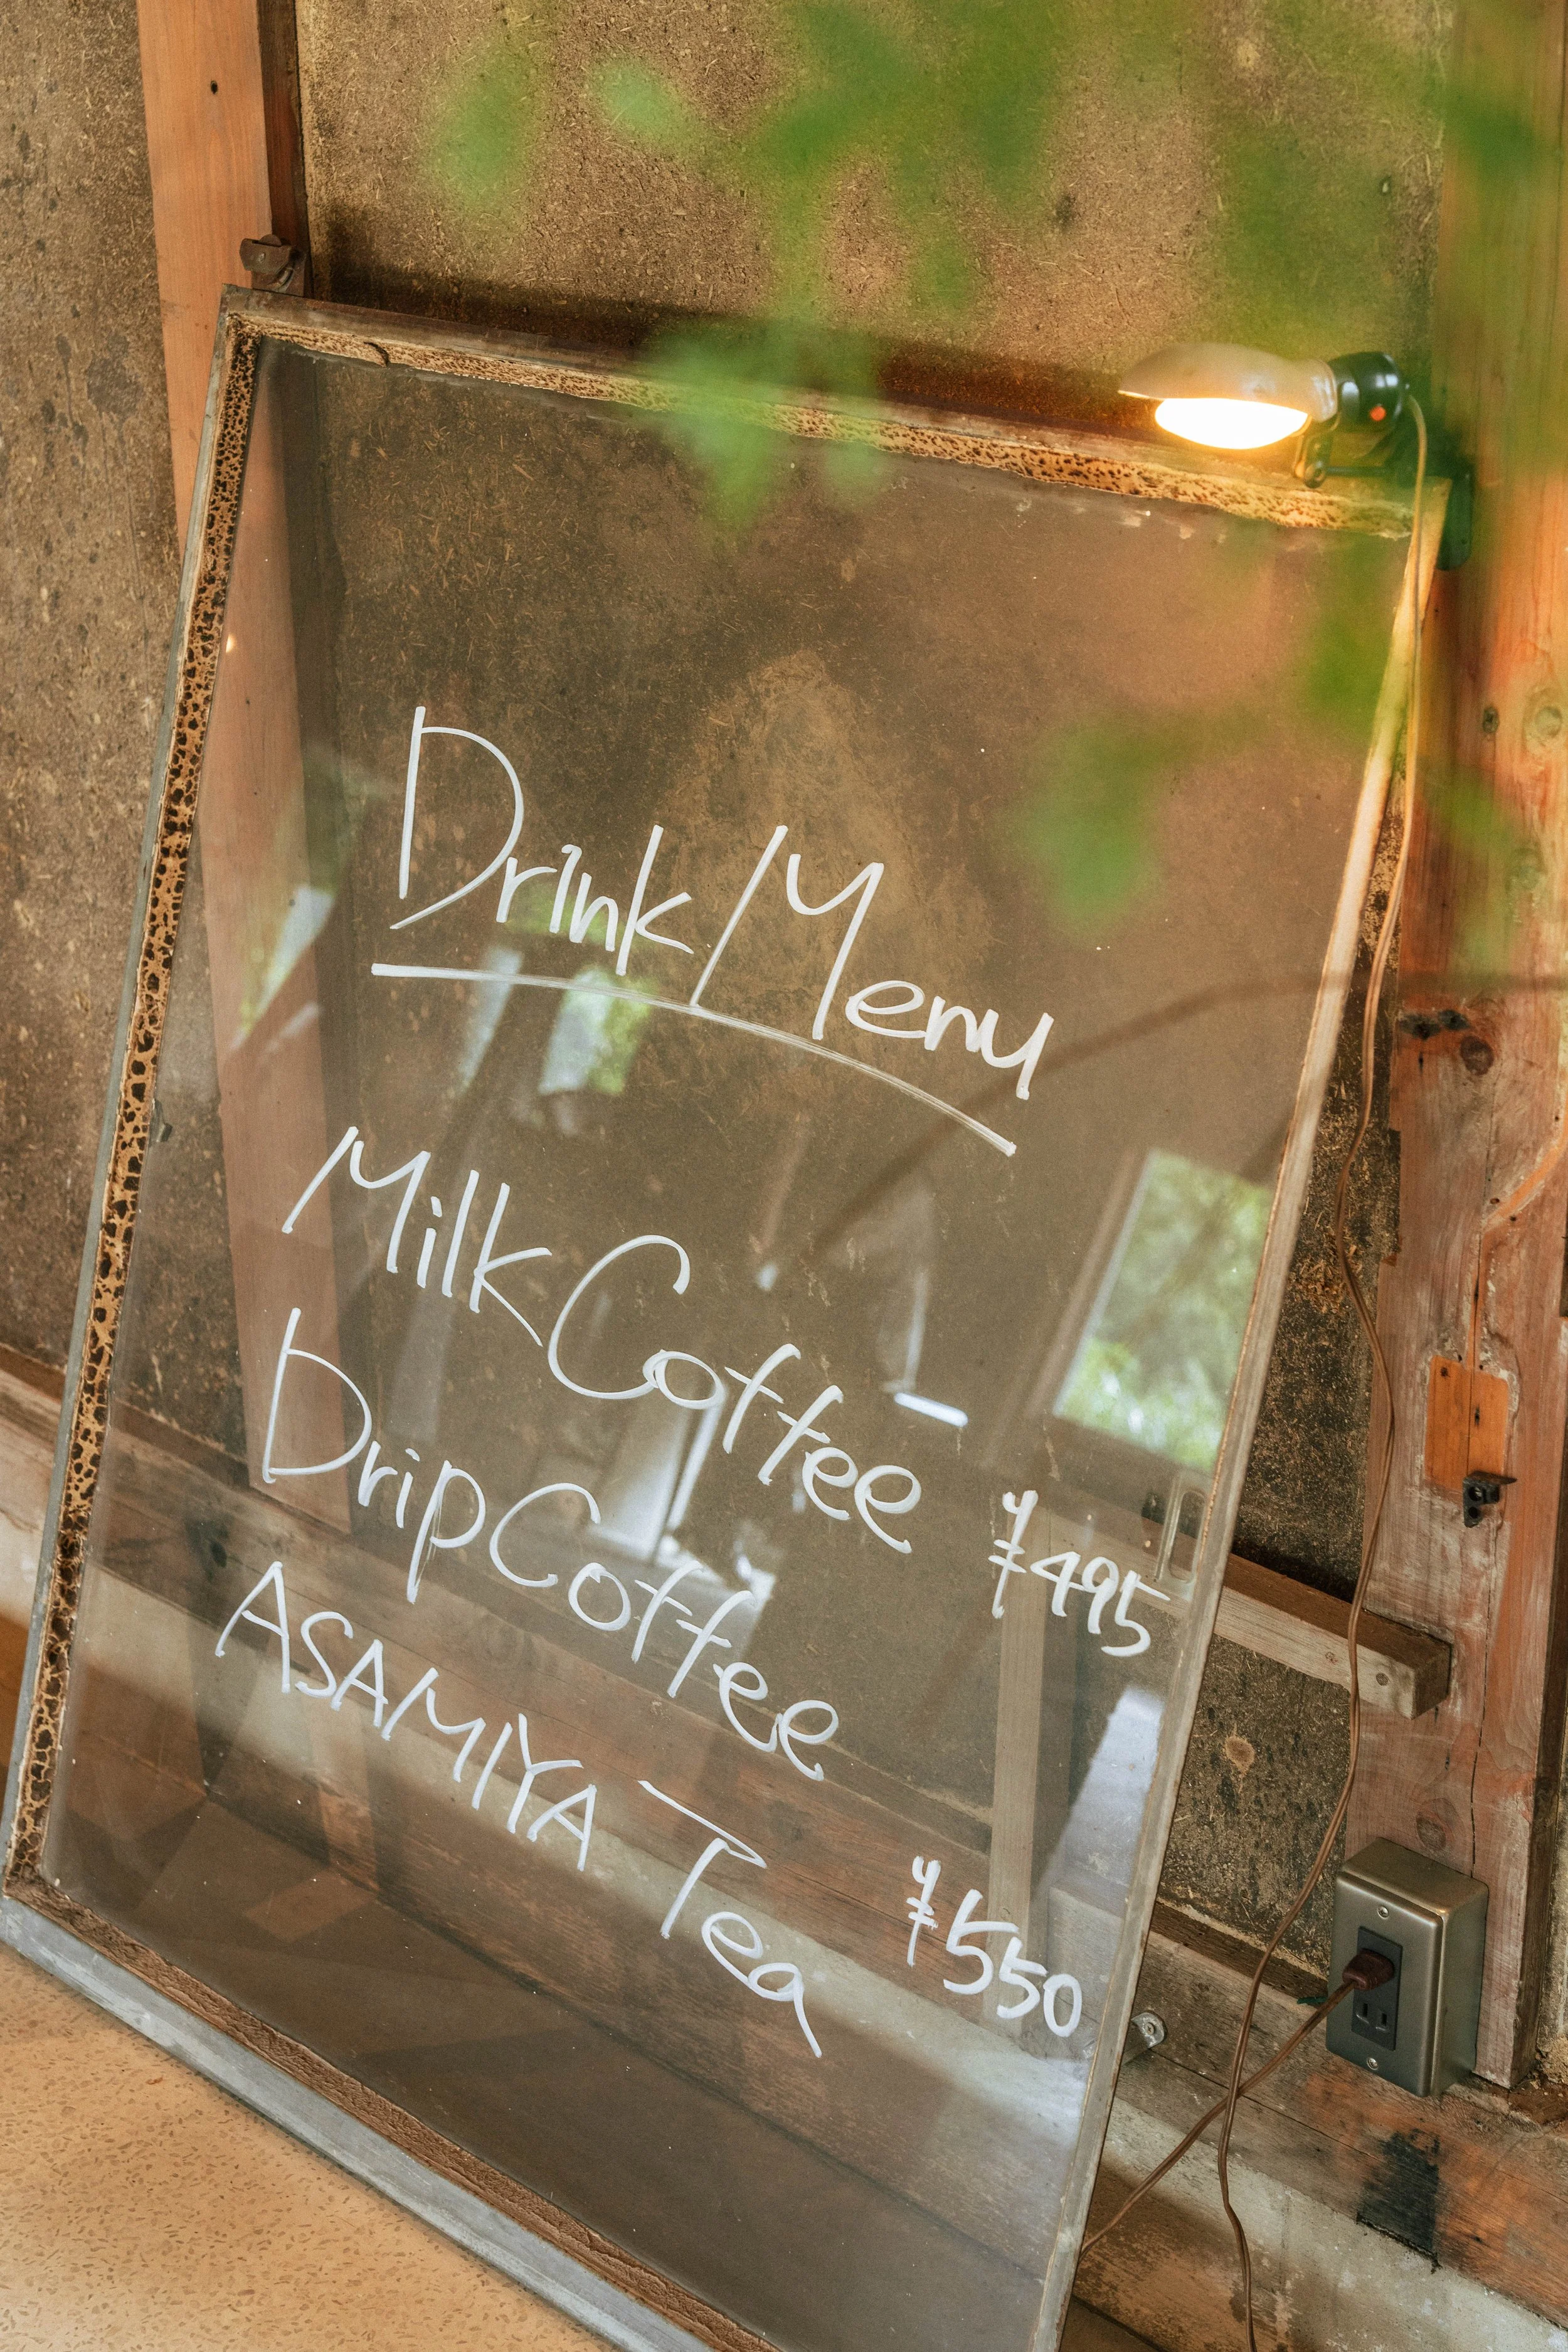 Drink/Menu
Milk Coffee ¥495
Drip Coffee
ASAMIYA Tea ¥550